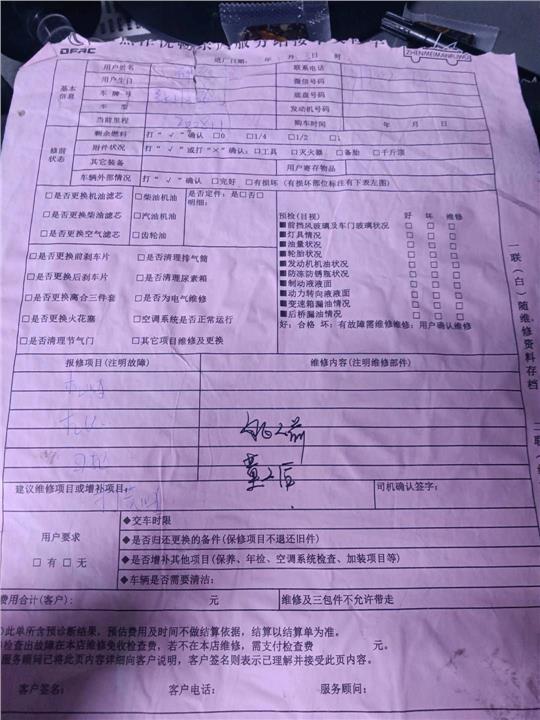 DFAC
ZHENMEIMANFUWU
进厂日期： 年 月 日 时
基本信息
用户姓名 联系电话
用户生日 微信号码
车牌号 底盘号码
车型 发动机号码
当前里程 购车时间 年 月 日
修前状态
剩余燃料 打“√”确认 □0 □1/4 □1/2 □1
附件状况 打“√”或打“×”确认：□工具 □灭火器 □备胎 □千斤顶
其它装备 用户寄存物品
车辆外部情况 打“√”确认 □完好 □有损坏（有损坏部位标注有下表左图）
□是否更换机油滤芯 □柴油机油 是否定件：是□否□
明细：
□是否更换柴油滤芯 □汽油机油
□是否更换空气滤芯 □齿轮油
□是否更换前刹车片 □是否清理排气筒
□是否更换后刹车片 □是否清理尿素箱
□是否更换离合三件套 □是否为电气维修
□是否更换火花塞 □空调系统是否正常运行
□是否清理节气门 □其它项目维修及更换
预检(目视) 好 坏 维修
■前挡风玻璃及车门玻璃状况 □ □ □
■灯具情况 □ □ □
■油量状况 □ □ □
■轮胎状况 □ □ □
■发动机机油状况 □ □ □
■防冻防锈瓶状况 □ □ □
■制动液液面 □ □ □
■动力转向液液面 □ □ □
■变速箱漏油情况 □ □ □
■后桥漏油情况 □ □ □
好：合格 坏：有故障需维修维修：用户确认维修
一联（白）随维修资料存档
报修项目(注明故障) 维修内容(注明维修部件)
建议维修项目或增补项目： 司机确认签字：
用户要求
□有 □无
◆交车时限
◆是否归还更换的备件(保修项目不退还旧件)
◆是否增补其他项目(保养、年检、空调系统检查、加装项目等)
◆车辆是否需要清洁：
费用合计(客户)： 元 维修及三包件不允许带走
此单所含预诊断结果，预估费用及时间不做结算依据，结算以结算单为准。
检查出故障在本店维修免收检查费，若不在本店维修，需支付检查费 元。
服务顾问已将此页内容详细向客户说明，客户签名则表示已理解并接受此页内容。
客户签名： 客户电话： 服务顾问：